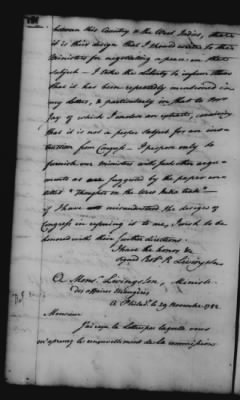 between this Country & the West Indies, that
it is their design that I should write to their
Ministers for negotiating a peace on that
subject — I take the Liberty to inform them
that it has been repeatedly mentioned in
my letters, & particularly in that to Doctr
of which I enclose an extract, conceiving
that it is not a proper subject for an ins-
truction from Congress — I propose only to
furnish our Ministers with such other argu-
ments as are suggested by the paper en-
titled "Thoughts on the West India trade" —
if I have misunderstood the designs of
Congress in referring it to me, I wish to be
honored with their further directions
I have the honor &
Signed Robt R Livingston
A Monsr Livingston, Ministre
des affaires étrangères
A Philada. le 29 Novembre 1782
Monsieur
J'ai reçu la Lettre par laquelle vous
m'apprenez le renouvellement de la commission